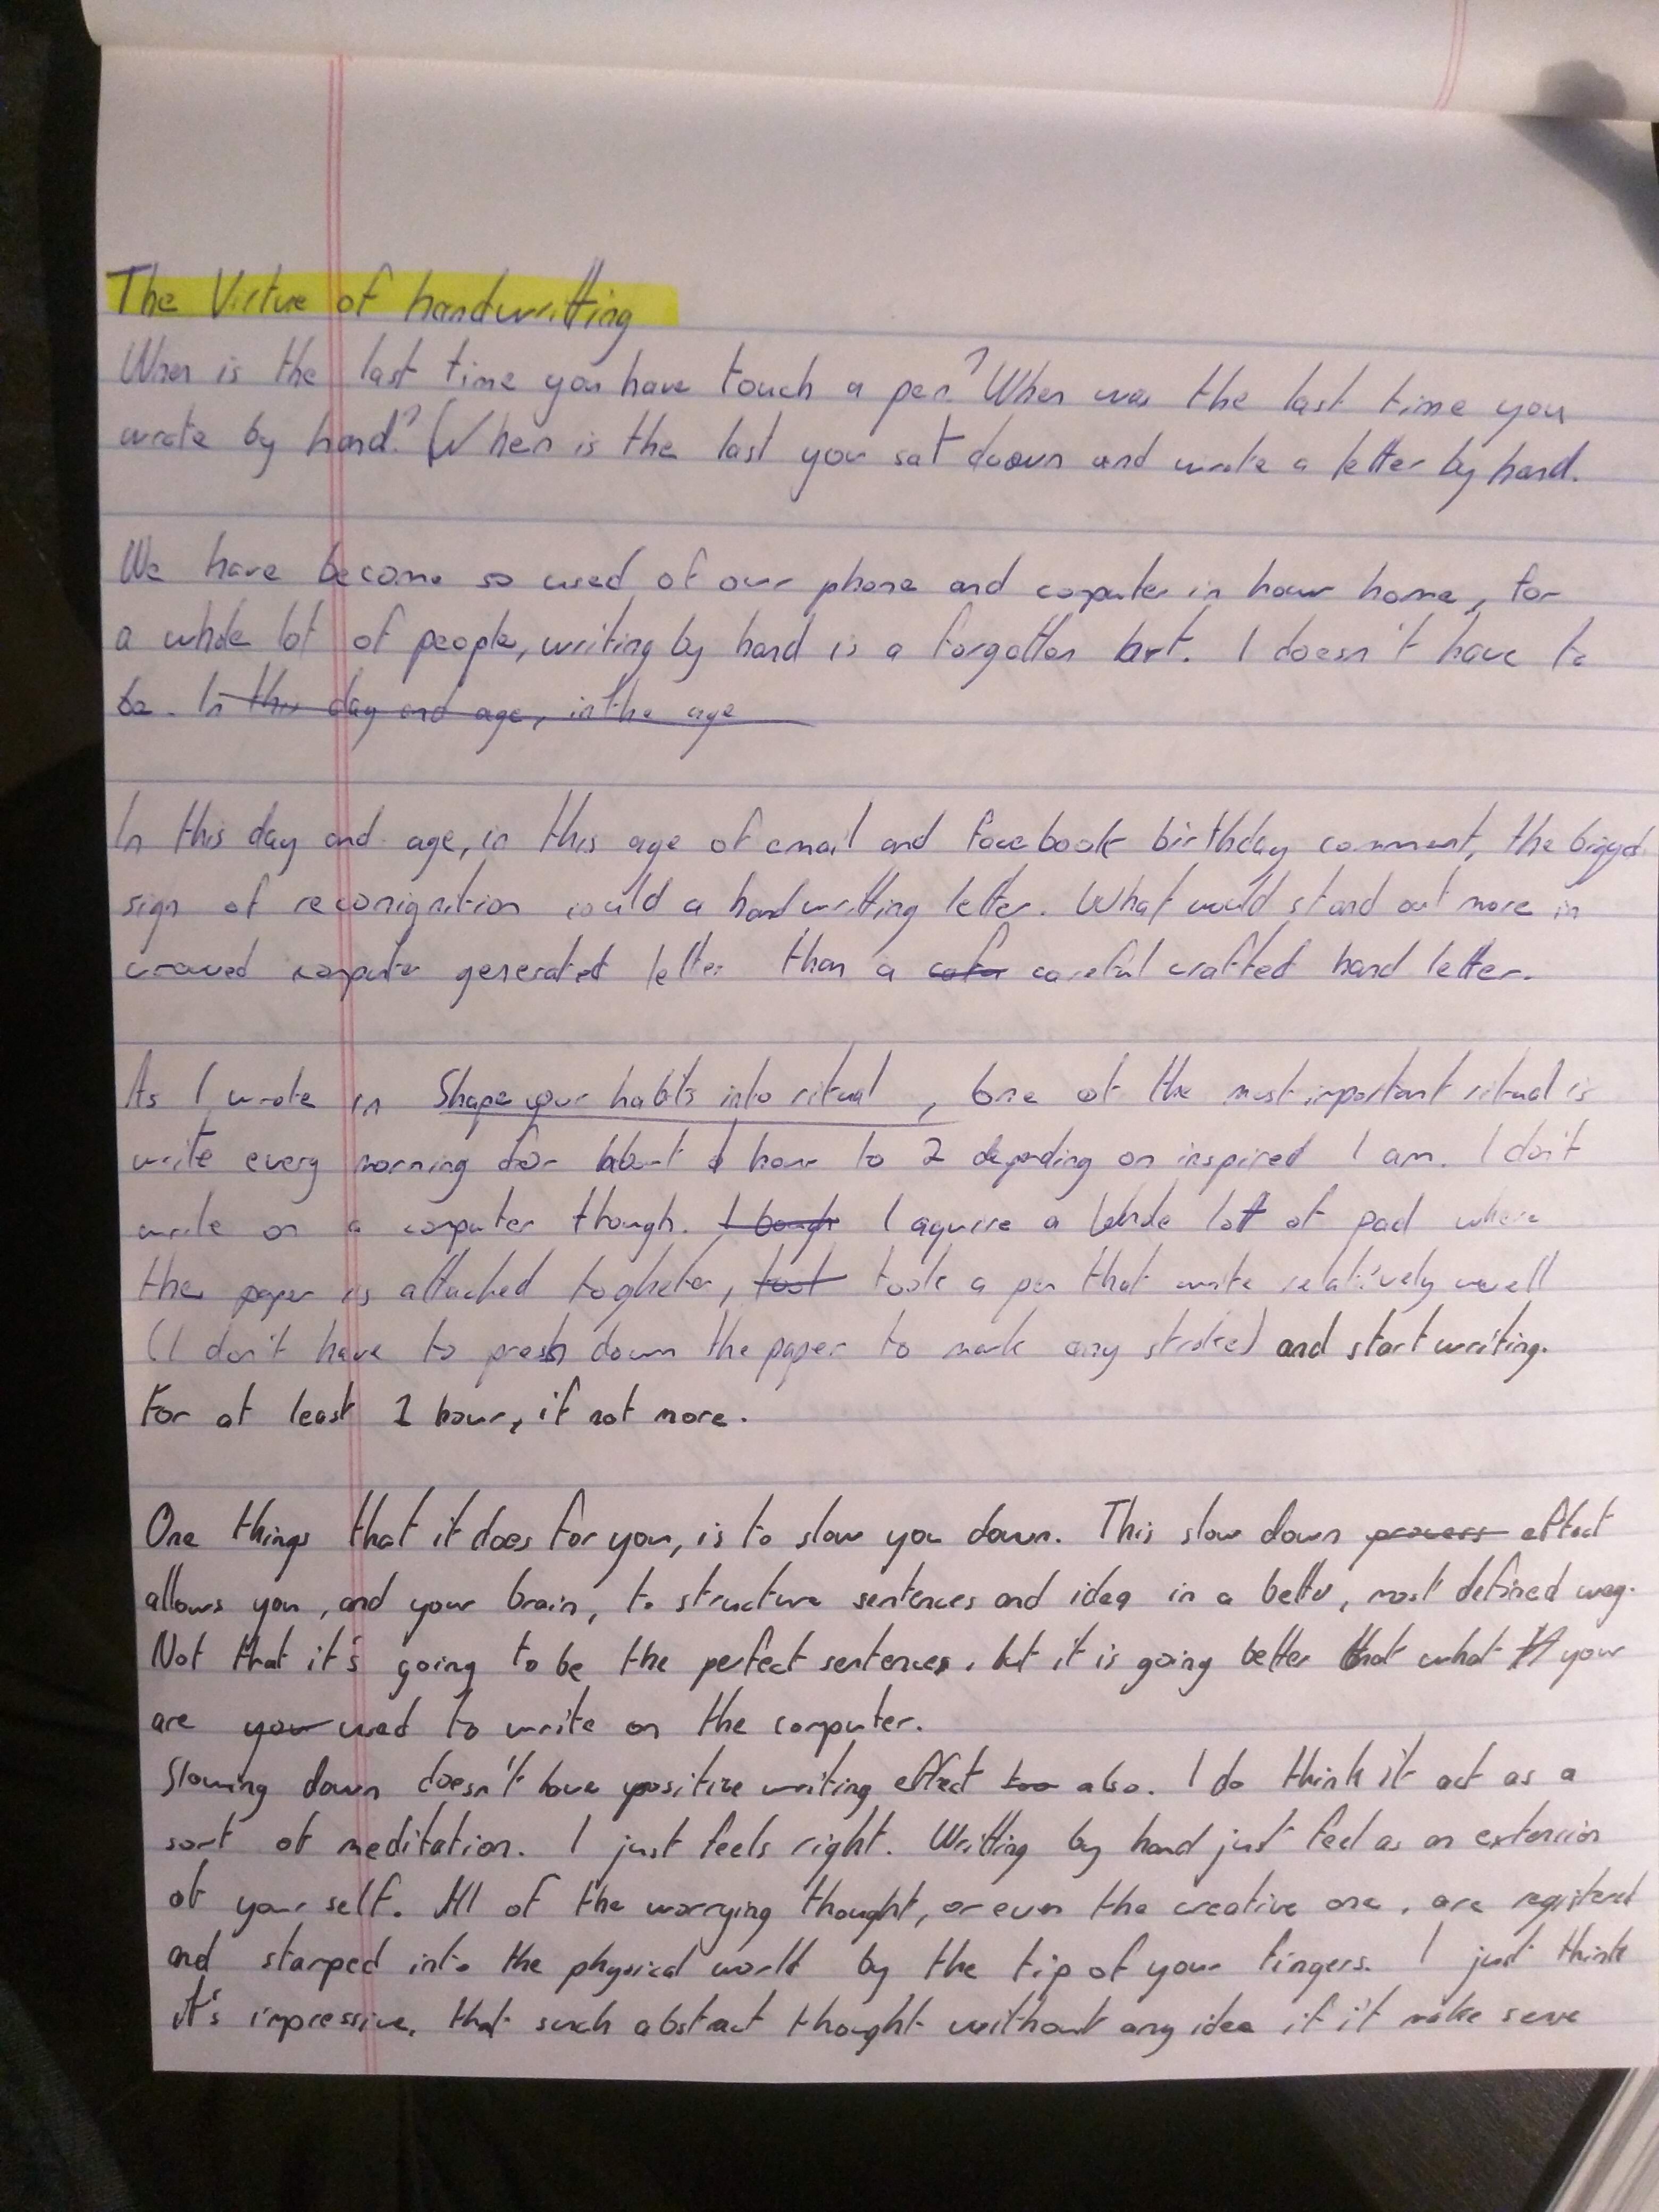 The Virtue of handwritting
When is the last time you have touch a pen? When was the last time you
wrote by hand? When is the last you sat down and wrote a letter by hand.
We have become so used of our phone and computer in hour home, for
a whole lot of people, writing by hand is a forgotten art. I doesn't have to
be. In this day and age, in the age
In this day and age, in this age of email and facebook birthday comment, the
sign of could a handwritting letter. What would stand out more in
computer generated letter than a careful crafted hand letter.
As I wrote in Shape your habits into ritual, one of the most important ritual is
write every morning for about 1 hour to 2 depending on inspired I am. I don't
write on a computer though. I bough I aquire a whole lot of pad where
the paper is attached togheter, toot took a pen that write relatively well
(I don't have to press down the paper to mark any stroke) and start writing.
For at least 1 hour, if not more.
One things that it does for you, is to slow you down. This slow down process effect
allows you, and your brain, to structure sentences and idea in a better, most defined way.
Not that it's going to be the perfect sentences, but it is going better that what your
are your used to write on the computer.
Slowing down doesn't have positive writing effect too also. I do think it act as a
sort of meditation. I just feels right. Writting by hand just feel as an extension
of your self. All of the worrying thought, or even the creative one, are registered
and stamped into the physical world by the tip of your fingers. I just think
it's impressive, that such abstract thought without any idea if it make sense